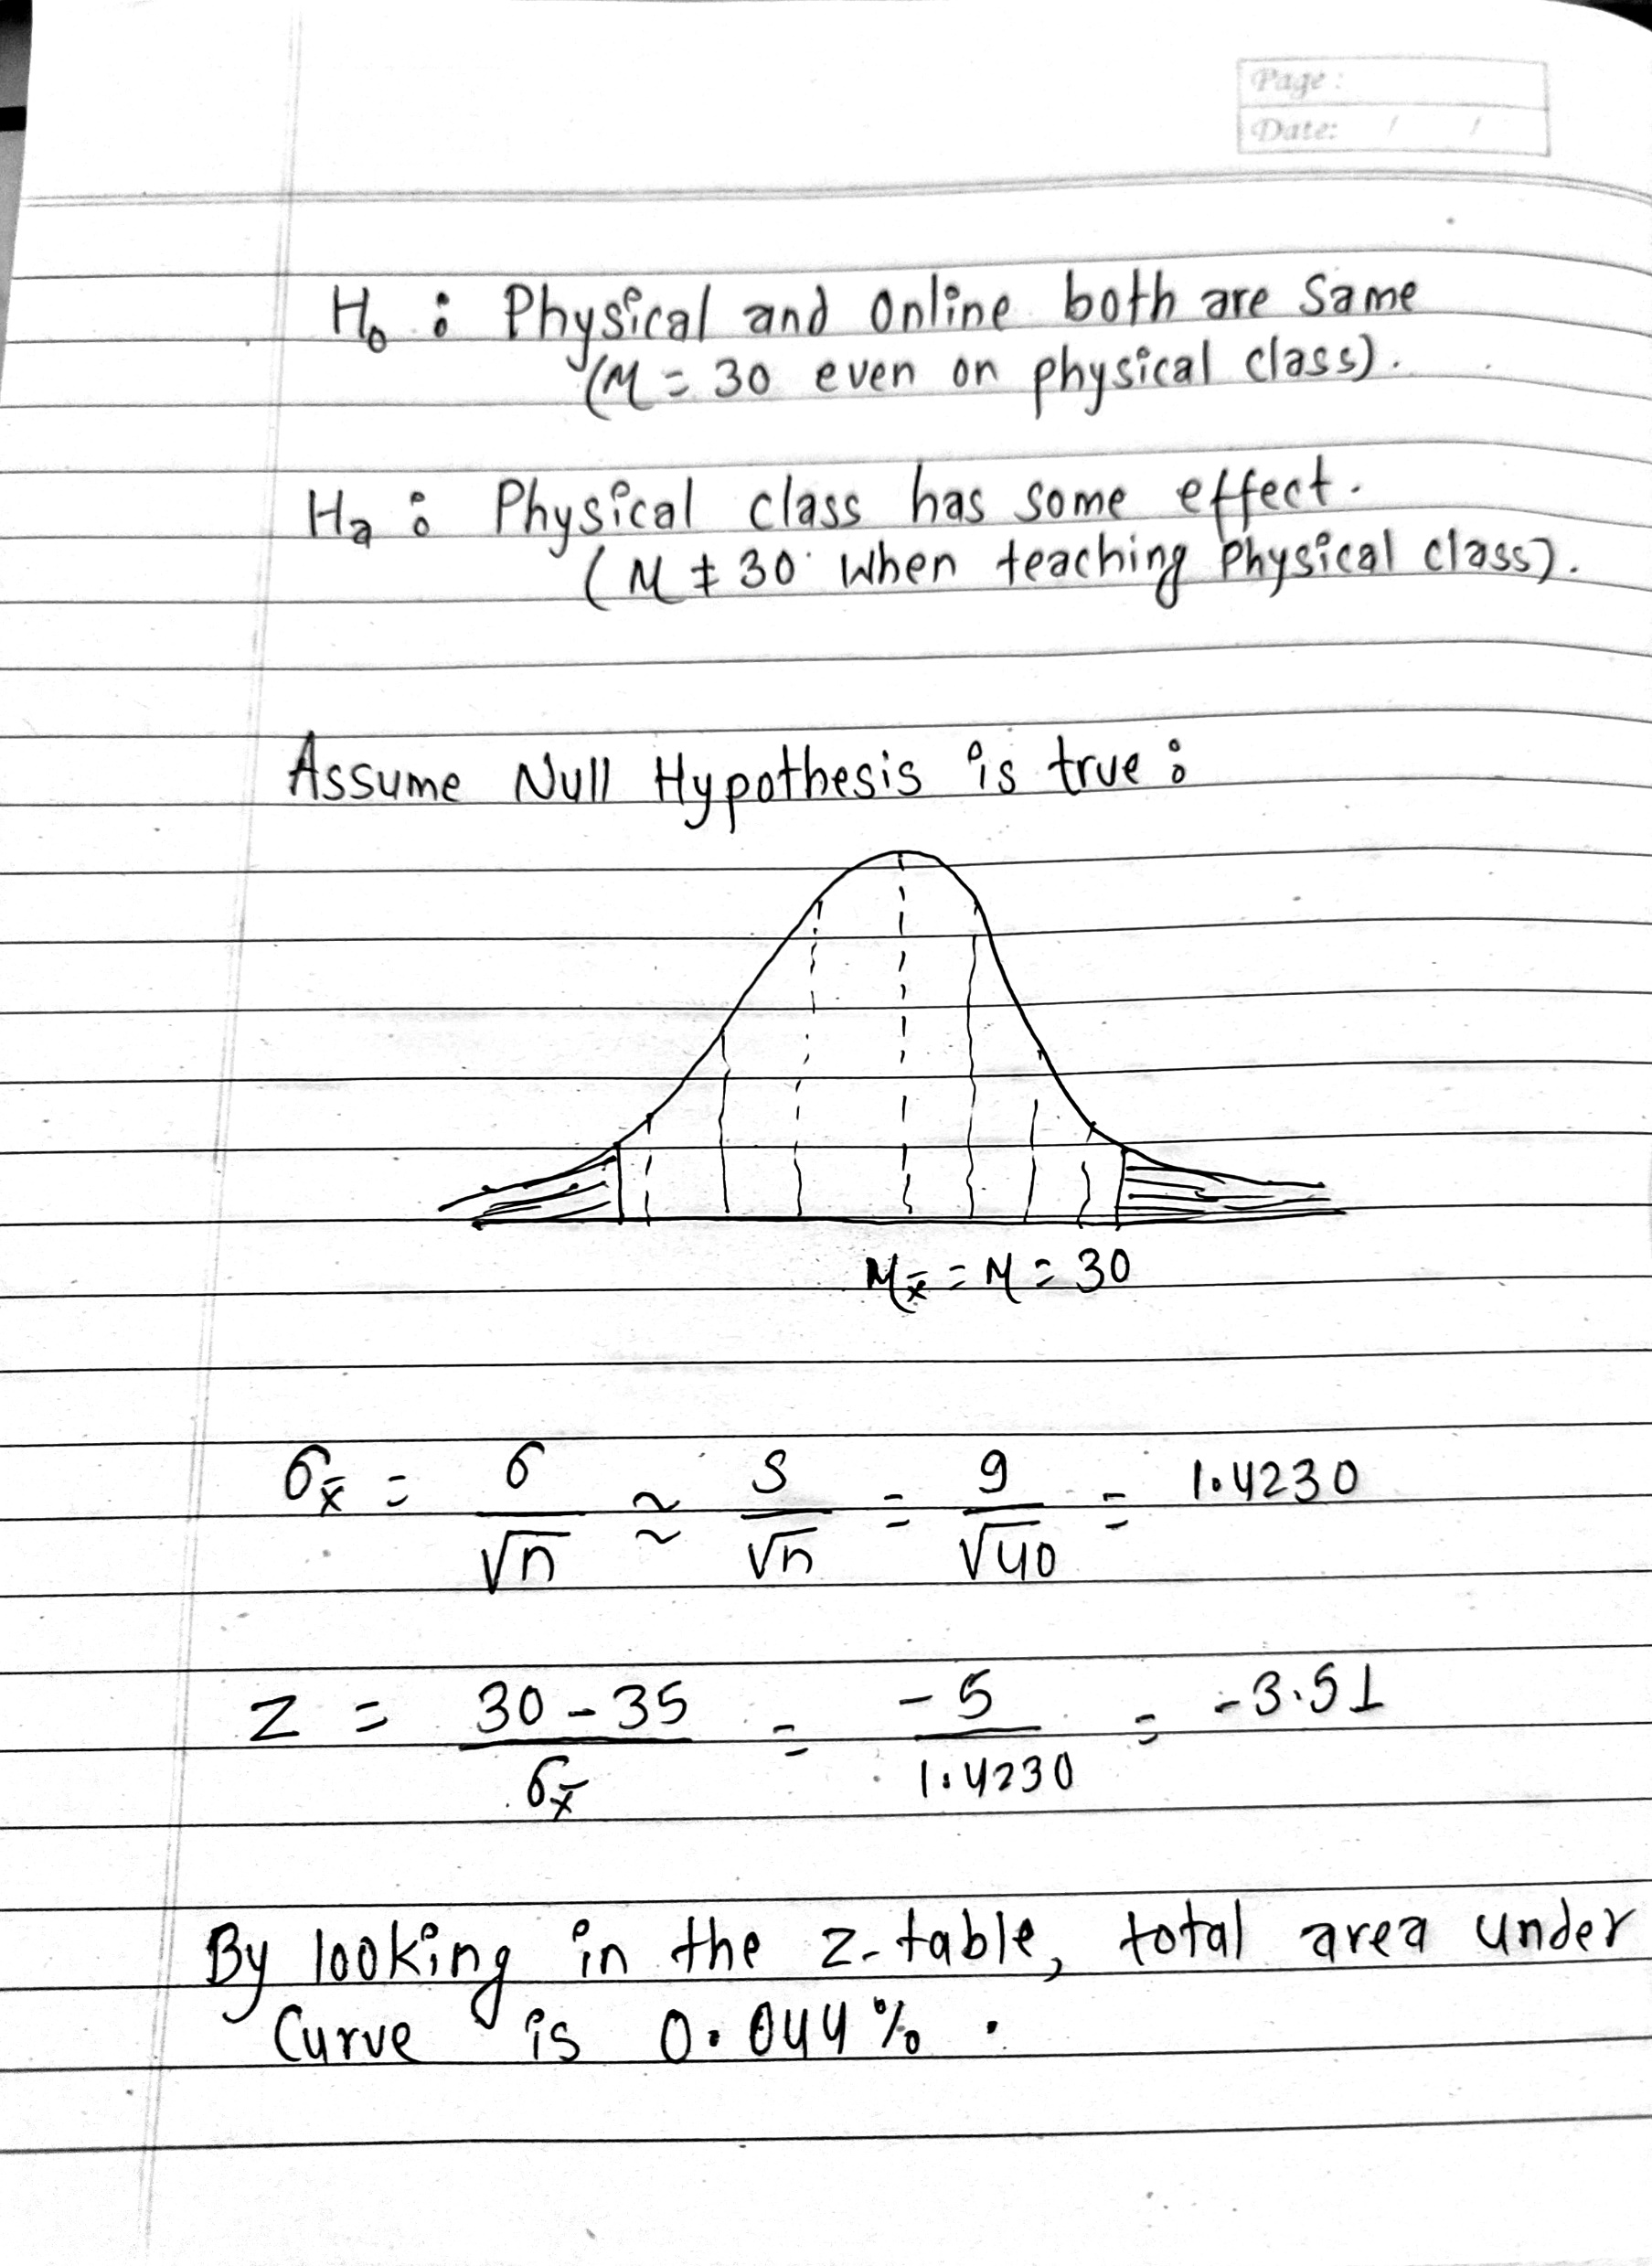 Page:
Date: / /
H₀ : Physical and Online both are Same
(M = 30 even on physical class).
Ha : Physical class has some effect.
(M ≠ 30 when teaching Physical class).
Assume Null Hypothesis is true :
M x̄ = M = 30
σx̄ = σ/√n ≈ s/√n = 9/√40 = 1.4230
z = (30 - 35)/σx̄ = -5/1.4230 = -3.51
By looking in the z-table, total area under
Curve is 0.044% .